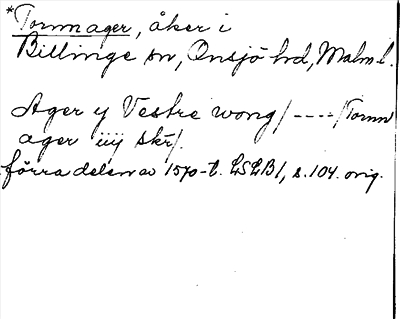 *Tornn ager, åker i
Billinge sn, Onsjö hd, Malm.l.
Ager y Vestre wong /----/ Tornn
ager iiij skr/.
förra delen av 1570-t. LSLB1, s.104. orig.